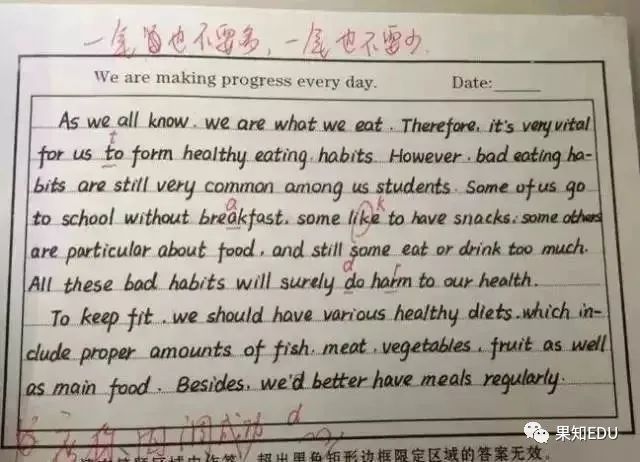 一尾也不要多，一尾也不要少.
We are making progress every day. Date:
As we all know, we are what we eat. Therefore, it's very vital
t
for us to form healthy eating habits. However, bad eating ha-
bits are still very common among us students. Some of us go
a k
to school without breakfast, some like to have snacks, some others
are particular about food, and still some eat or drink too much.
d r
All these bad habits will surely do harm to our health.
To keep fit, we should have various healthy diets, which in-
clude proper amounts of fish, meat, vegetables, fruit as well
as main food. Besides, we'd better have meals regularly.
成功 d
超出黑色矩形边框限定区域的答案无效。
果知EDU